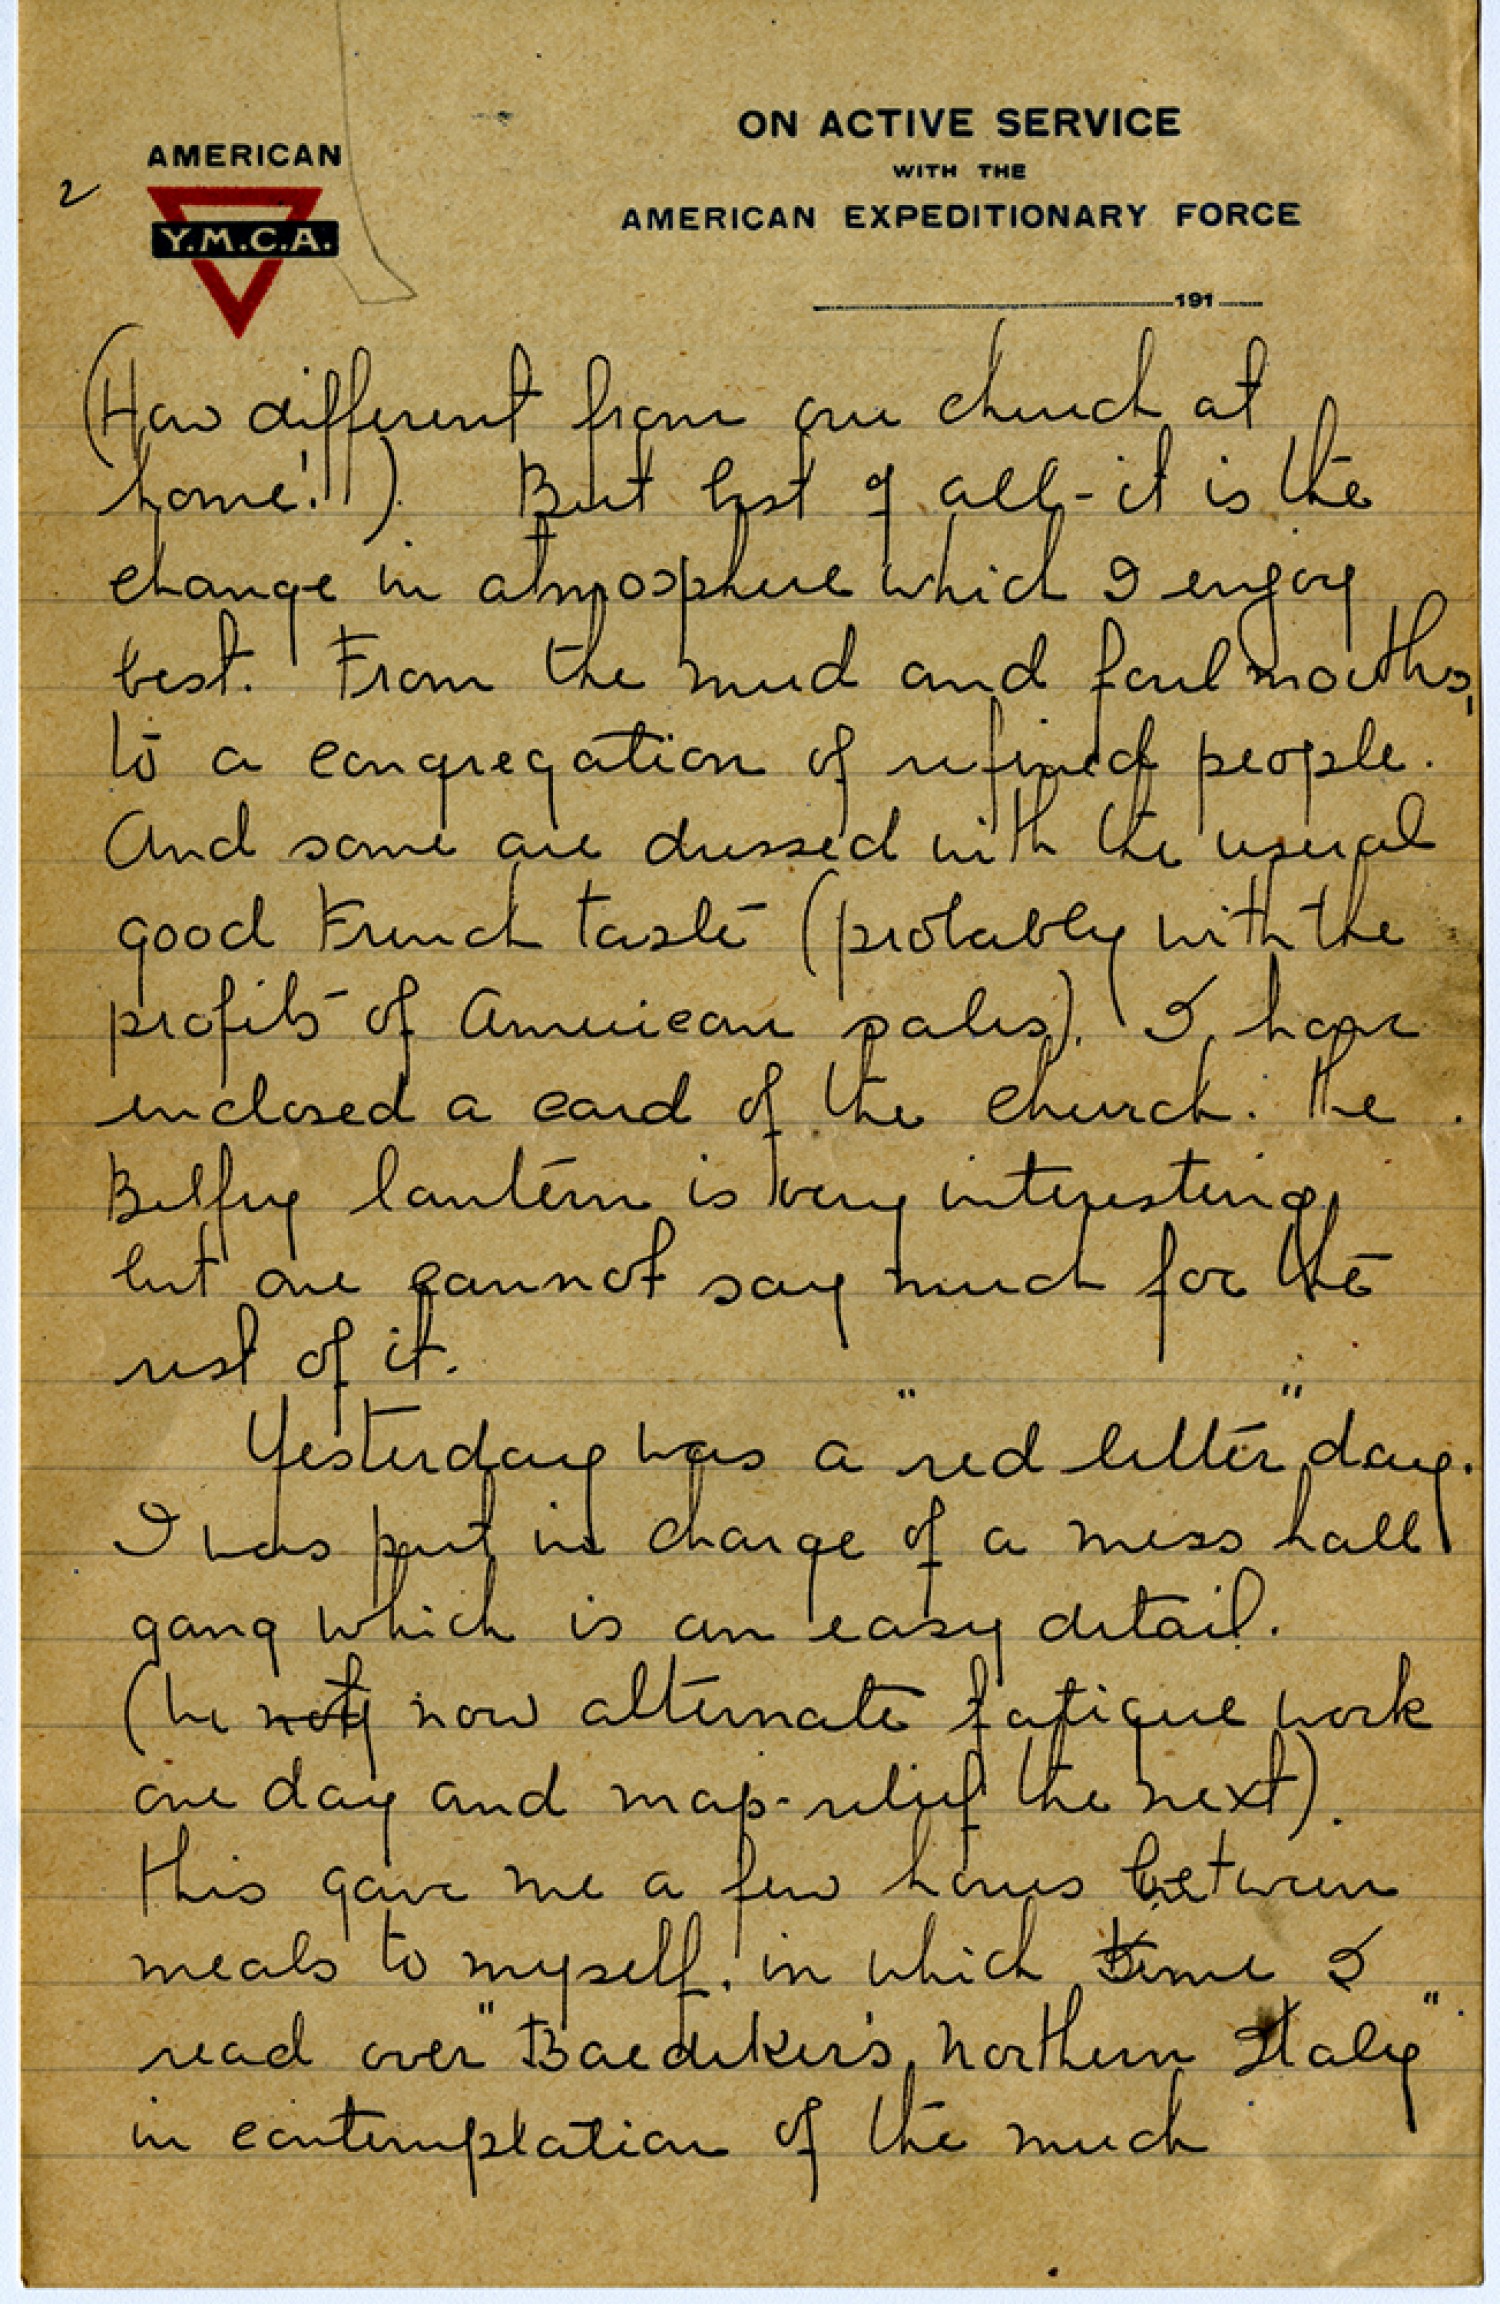 ON ACTIVE SERVICE
WITH THE
AMERICAN EXPEDITIONARY FORCE
AMERICAN
Y.M.C.A.
2
191
(How different from our church at
home!!). But best of all - it is the
change in atmosphere which I enjoy
best. From the mud and foul mouths,
to a congregation of refined people.
And some are dressed with the usual
good French taste (probably with the
profits of American sales). I have
enclosed a card of the church. The
Belfry lantern is very interesting,
but one cannot say much for the
rest of it.
Yesterday was a "red letter" day.
I was put in charge of a mess hall
gang which is an easy detail.
(We now alternate fatigue work
one day and map-relief the next).
This gave me a few hours between
meals to myself, in which time I
read over "Baedeker's Northern Italy"
in contemplation of the much